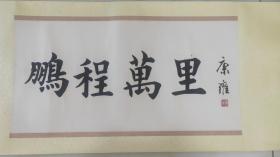 鵬程萬里
康雍